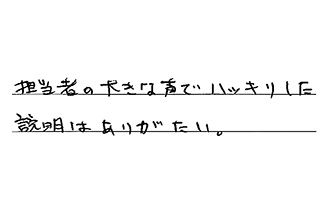 担当者の大きな声でハッキリした
説明はありがたい。